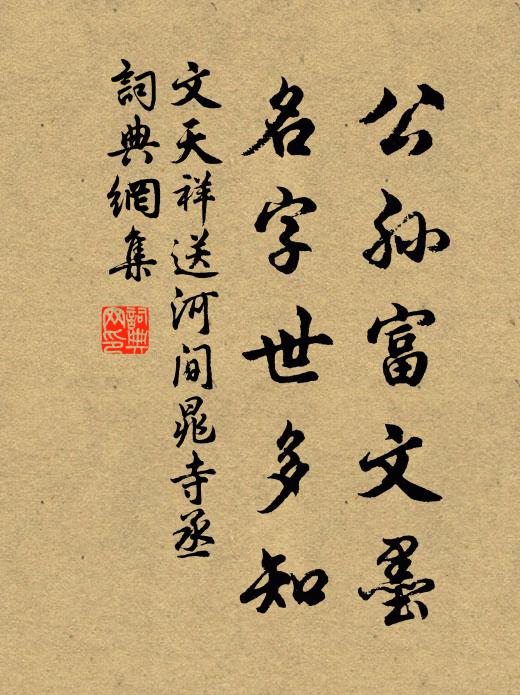 公孙富文墨
名字世多知
文天祥送河间晁寺丞
詞典網集
詞典网印